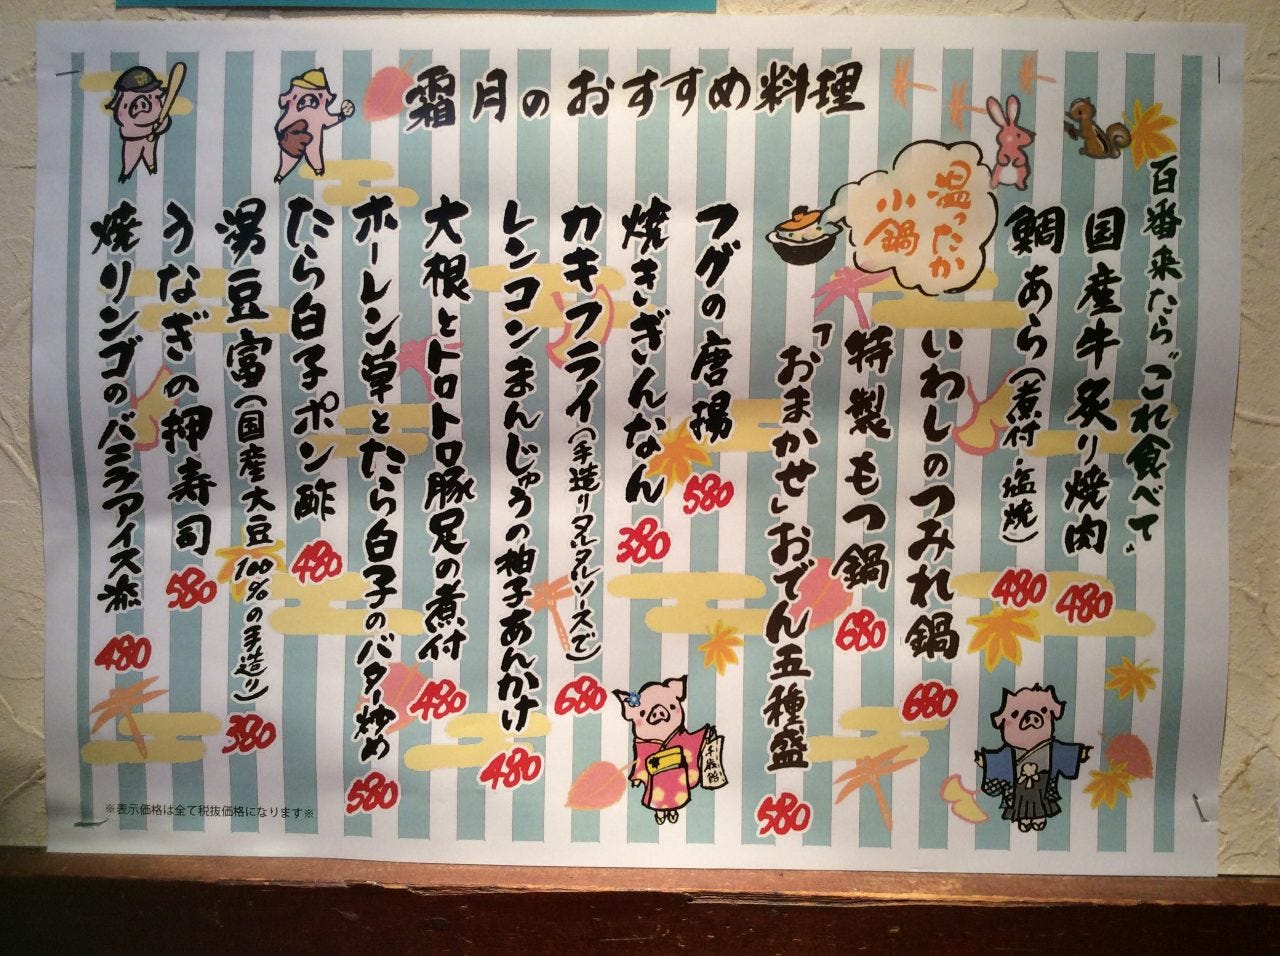 霜月のおすすめ料理
百番来たら「これ食べて」
国産牛炙り焼肉 480
鯛あら(煮付・塩焼) 480
温ったか
小鍋
いわしのつみれ鍋 680
特製もつ鍋 680
「おまかせ」おでん五種盛 580
フグの唐揚 580
焼きぎんなん 380
カキフライ(手造りタルタルソースで) 680
レンコンまんじゅうの柚子あんかけ 480
大根とトロトロ豚足の煮付 480
ホーレン草とたら白子のバター炒め 580
たら白子ポン酢 480
湯豆富(国産大豆100%の手造り) 380
うなぎの押寿司 580
焼リンゴのバニラアイス添 480
千歳飴
※表示価格は全て税抜価格になります※